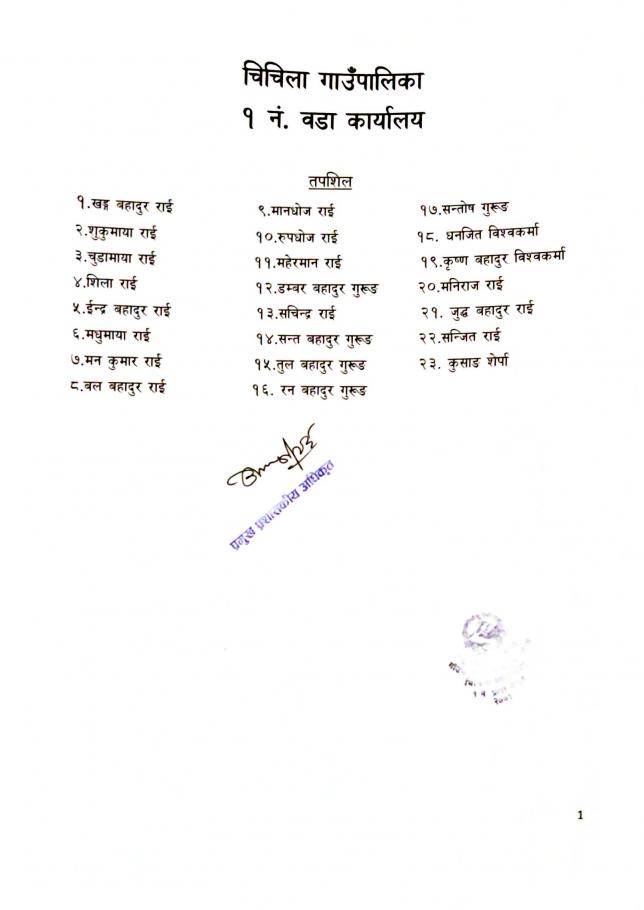 चिचिला गाउँपालिका
१ नं. वडा कार्यालय
तपशिल
१.खड्ग बहादुर राई
२.शुकुमाया राई
३.चुडामाया राई
४.शिला राई
५.ईन्द्र बहादुर राई
६.मधुमाया राई
७.मन कुमार राई
८.बल बहादुर राई
९.मानधोज राई
१०.रुपधोज राई
११.महेरमान राई
१२.डम्बर बहादुर गुरूङ
१३.सचिन्द्र राई
१४.सन्त बहादुर गुरूङ
१५.तुल बहादुर गुरूङ
१६. रन बहादुर गुरूङ
१७.सन्तोष गुरूङ
१८. धनजित विश्वकर्मा
१९.कृष्ण बहादुर विश्वकर्मा
२०.मनिराज राई
२१. जुद्ध बहादुर राई
२२.सन्जित राई
२३. कुसाङ शेर्पा
प्रमुख प्रशासकीय अधिकृत
1